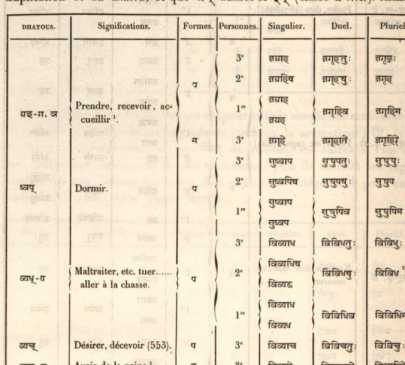 DHATOUS. Significations. Formes. Personnes. Singulier. Duel. Pluriel
3e जग्राह जगृहतुः जगृहुः
2e जग्रहिथ जगृहथुः जगृह
ग्रह्-ग. ञ Prendre, recevoir, ac-
cueillir 1. प
1re जग्राह जगृहिव जगृहिम
जग्रह
म 3e जगृहे जगृहाते जगृहिरे
3e सुष्वाप सुषुपतुः सुषुपुः
ष्वप् Dormir. प 2e सुष्वपिथ सुषुपथुः सुषुप
1re सुष्वाप सुषुपिव सुषुपिम
सुष्वप
3e विव्याध विविधतुः विविधुः
विव्यधिथ
व्यध्-य Maltraiter, etc. tuer...... प 2e विविधथुः विविध
aller à la chasse.
विव्यद्ध
1re विव्याध विविधिव विविधिम
विव्यध
व्यच् Désirer, décevoir (553). प 3e विव्याच विविचतुः विविचुः